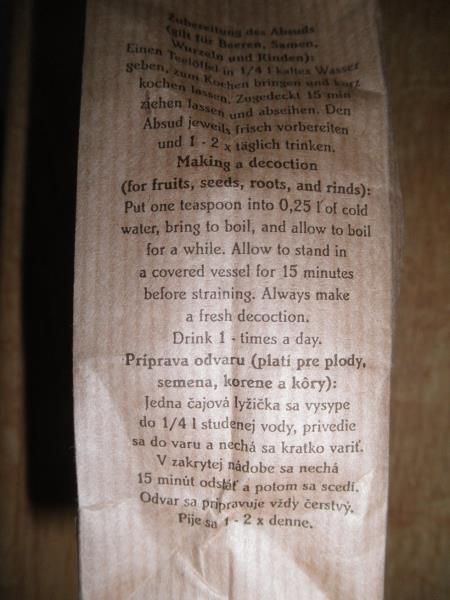 Zubereitung des Absuds
(gilt für Beeren, Samen,
Wurzeln und Rinden):
Einen Teelöffel in 1/4 l kaltes Wasser
geben, zum Kochen bringen und kurz
kochen lassen. Zugedeckt 15 min
ziehen lassen und abseihen. Den
Absud jeweils frisch vorbereiten
und 1 - 2 x täglich trinken.
Making a decoction
(for fruits, seeds, roots, and rinds):
Put one teaspoon into 0,25 l of cold
water, bring to boil, and allow to boil
for a while. Allow to stand in
a covered vessel for 15 minutes
before straining. Always make
a fresh decoction.
Drink 1 - times a day.
Príprava odvaru (platí pre plody,
semena, korene a kôry):
Jedna čajová lyžička sa vysype
do 1/4 l studenej vody, privedie
sa do varu a nechá sa kratko variť.
V zakrytej nádobe sa nechá
15 minút odstáť a potom sa scedí.
Odvar sa pripravuje vždy čerstvý.
Pije sa 1 - 2 x denne.